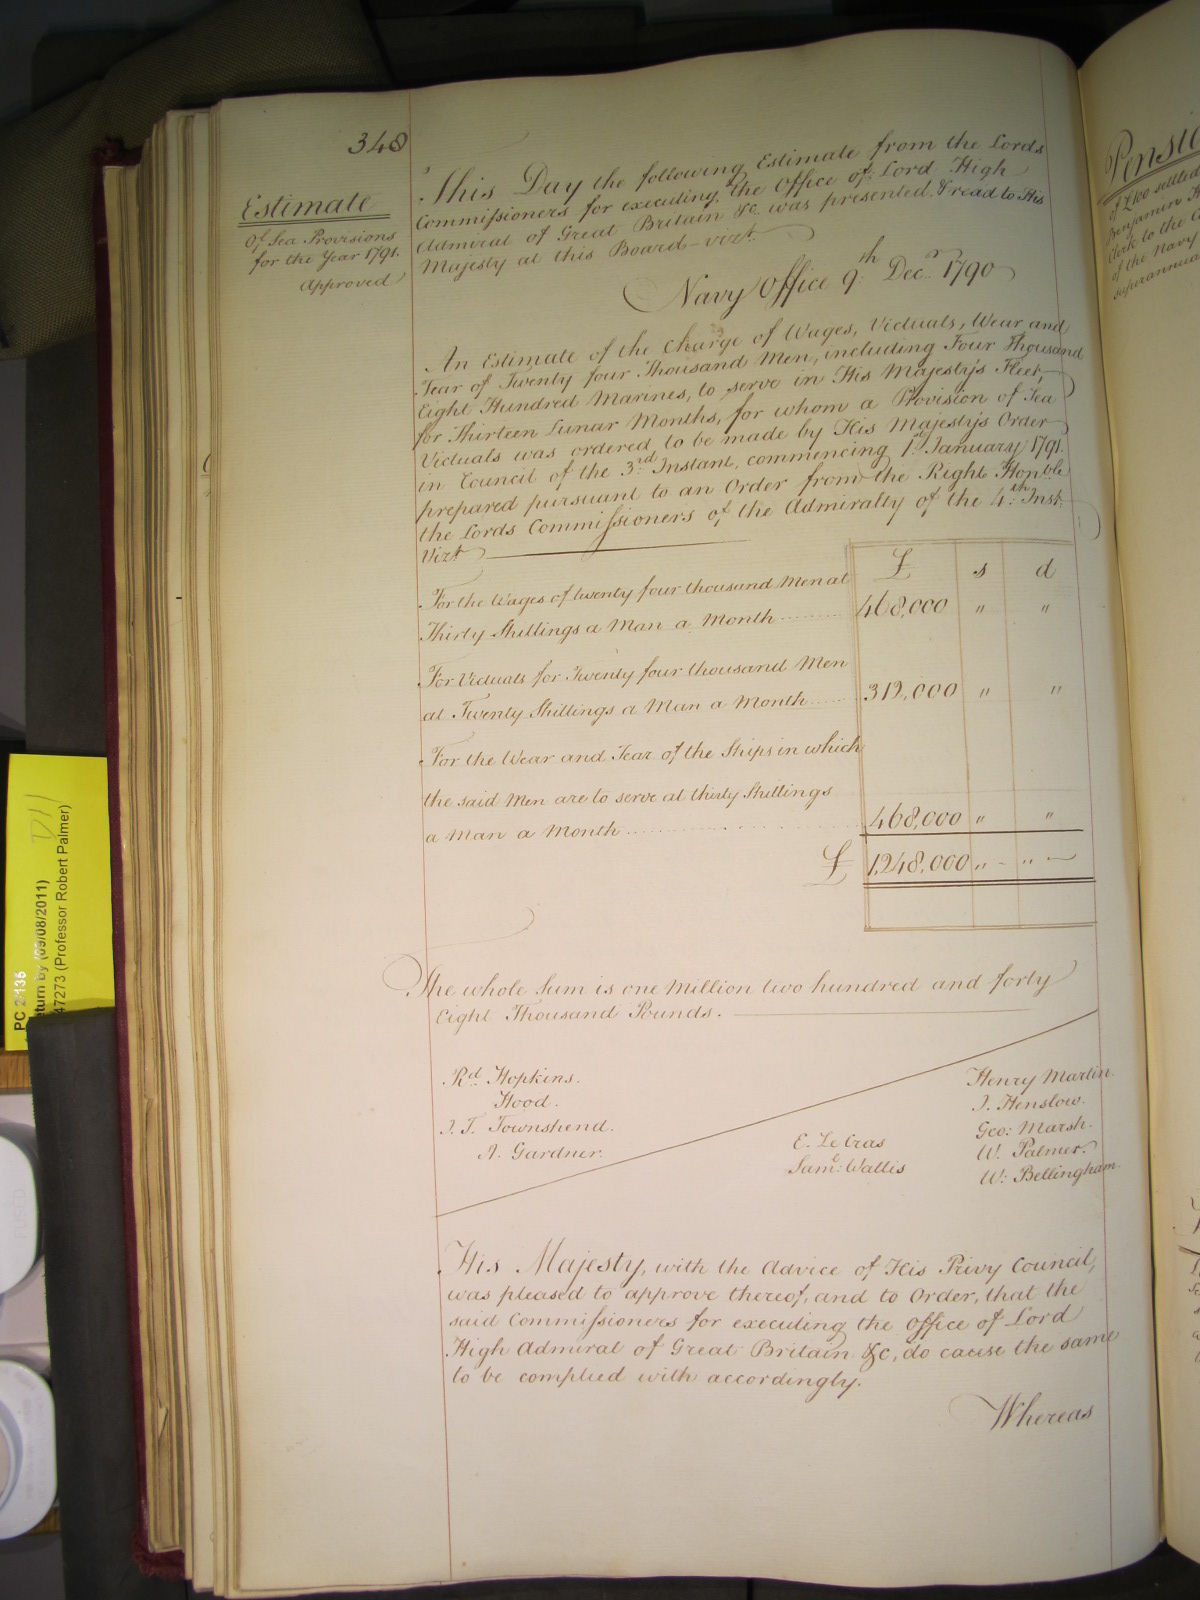 348
Estimate
Of Sea Provisions
for the Year 1791.
Approved
This Day the following Estimate from the Lords
Commissioners for executing the Office of Lord High
Admiral of Great Britain &c. was presented & read to His
Majesty at this Board – vizt.
Navy Office 9th Decr. 1790
An Estimate of the Charge of Wages, Victuals, Wear and
Tear of Twenty four Thousand Men, including Four Thousand
Eight Hundred Marines, to serve in His Majesty's Fleet,
for Thirteen Lunar Months, for whom a Provision of Sea
Victuals was ordered to be made by His Majesty's Order
in Council of the 3rd Instant, commencing 1st January 1791.
prepared pursuant to an Order from the Right Honble
the Lords Commissioners of the Admiralty of the 4th Inst.
Vizt
£ s d
For the Wages of twenty four thousand Men at
Thirty Shillings a Man a Month ........ 468,000 " "
For Victuals for Twenty four thousand Men
at Twenty Shillings a Man a Month ..... 312,000 " "
For the Wear and Tear of the Ships in which
the said Men are to serve at thirty Shillings
a Man a Month ........ 468,000 " "
£ 1,248,000 " - " -
The whole Sum is one Million two hundred and forty
Eight Thousand Pounds.
Rd. Hopkins.
Hood.
J. T. Townshend.
A. Gardner.
E. Le Cras
Saml: Wallis
Henry Martin.
J. Henslow.
Geo: Marsh.
W. Palmer.
W: Bellingham.
His Majesty, with the Advice of His Privy Council,
was pleased to approve thereof, and to Order, that the
said Commissioners for executing the Office of Lord
High Admiral of Great Britain &c, do cause the same
to be complied with accordingly.
Whereas
Pensio
of £100 settled
Benjamin
Clerk to the
of the Navy
superannua
PC 2/135
eturn by (09/08/2011)
47273 (Professor Robert Palmer)
D11
FUSED